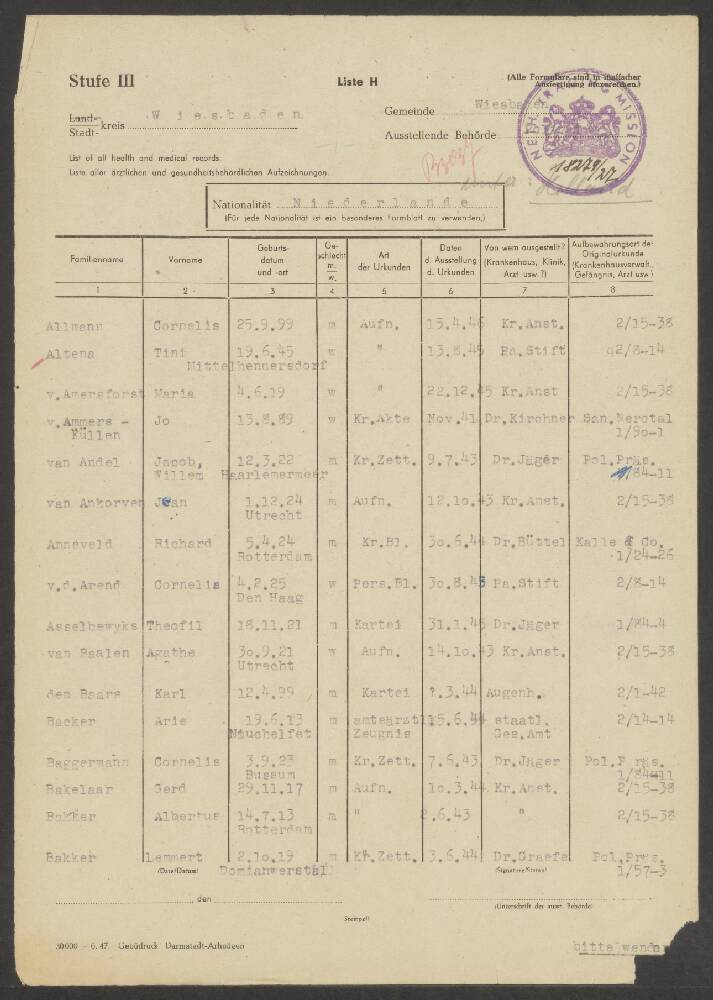 Stufe III
Liste H
(Alle Formulare sind in fünffacher
Ausfertigung einzureichen.)
Land-
Stadt- kreis Wiesbaden
Gemeinde Wiesbaden
Ausstellende Behörde
NETH MISSION
18279/27
List of all health and medical records.
Liste aller ärztlichen und gesundheitsbehördlichen Aufzeichnungen.
Nationalität Niederlande
(Für jede Nationalität ist ein besonderes Formblatt zu verwenden.)
Familienname Vorname Geburts-datum und -ort Ge-schlecht m. w. Art der Urkunden Daten d. Ausstellung d. Urkunden Von wem ausgestellt? (Krankenhaus, Klinik, Arzt usw.?) Aufbewahrungsort der Originalurkunde (Krankenhausverwalt., Gefängnis, Arzt usw.)
1 2 3 4 5 6 7 8
Allmann Cornelis 25.9.99 m Aufn. 15.4.46 Kr.Anst. 2/15-38
Altena Tini 19.6.45 w " 13.8.45 Pa.Stift 42/8-14
Mittelhennersdorf
v.Amersforst Maria 4.6.19 w " 22.12.45 Kr.Anst 2/15-38
v.Ammers - Jo 13.8.89 w Kr.Akte Nov.41 Dr.Kirchner San.Nerotal
Küllen 1/90-1
van Andel Jacob, 12.3.22 m Kr.Zett. 9.7.43 Dr.Jäger Pol.Präs.
Willem Haarlemermeer 1/84-11
van Ankorven Jean 1.12.24 m Aufn. 12.10.43 Kr.Anst. 2/15-38
Utrecht
Anneveld Richard 5.4.24 m Kr.Bl. 30.6.44 Dr.Büttel Kalle & Co.
Rotterdam 1/24-26
v.d.Arend Cornelia 4.2.25 w Pers.Bl. 30.8.43 Pa.Stift 2/8-14
Den Haag
Asselbewyks Theofil 18.11.21 m Kartei 31.1.45 Dr.Jäger 1/84-4
van Baalen Agathe 30.9.21 w Aufn. 14.10.43 Kr.Anst. 2/15-38
Utrecht
den Baars Karl 12.4.99 m Kartei ?.3.44 Augenh. 2/1-42
Backer Arie 19.6.13 m amtsärztl. 15.6.44 staatl. 2/14-14
Nauchelfet Zeugnis Ges.Amt
Baggermann Cornelis 3.9.23 m Kr.Zett. 7.6.43 Dr.Jäger Pol.Präs.
Bussum 1/84-11
Bakelaar Gerd 29.11.17 m Aufn. 10.3.44 Kr.Anst. 2/15-38
Bakker Albertus 14.7.13 m " 2.6.43 " 2/15-38
Rotterdam
Bakker Lemmert 2.10.19 m Kr.Zett. 3.6.44 Dr.Graefe Pol.Präs.
(Date/Datum) Domianwerstäl (Signature/Stempel) 1/57-3
, den
(Unterschrift der ausst. Behörde)
Stempel:
30000 - 6. 47. Gebüdruck Darmstadt-Arheilgen
bitte wenden